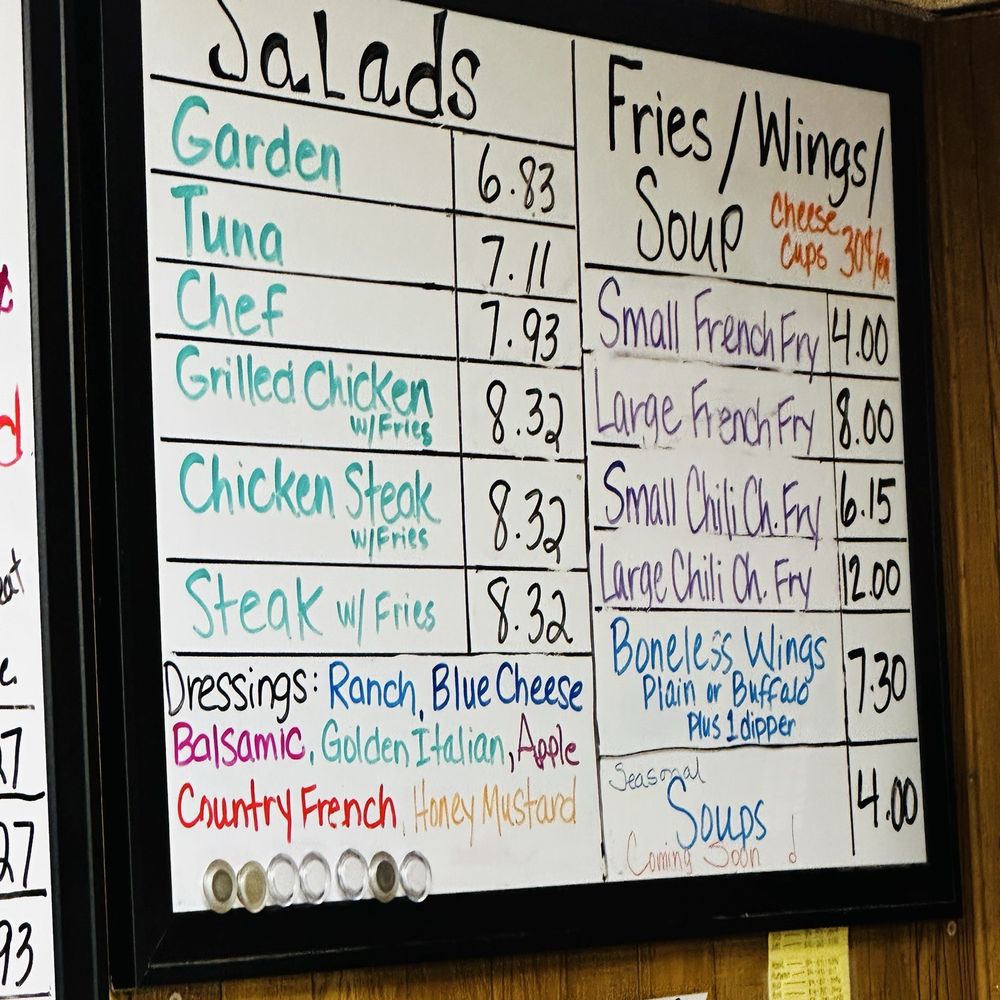 Salads
Garden 6.83
Tuna 7.11
Chef 7.93
Grilled Chicken 8.32
w/Fries
Chicken Steak 8.32
w/Fries
Steak w/ Fries 8.32
Dressings: Ranch, Blue Cheese
Balsamic, Golden Italian, Apple
Country French, Honey Mustard
Fries/Wings/
Soup
Cheese
Cups 30¢/ea
Small French Fry 4.00
Large French Fry 8.00
Small Chili Ch. Fry 6.15
Large Chili Ch. Fry 12.00
Boneless Wings 7.30
Plain or Buffalo
Plus 1 dipper
Seasonal
Soups 4.00
Coming Soon
¢
d
eat
e.
27
93